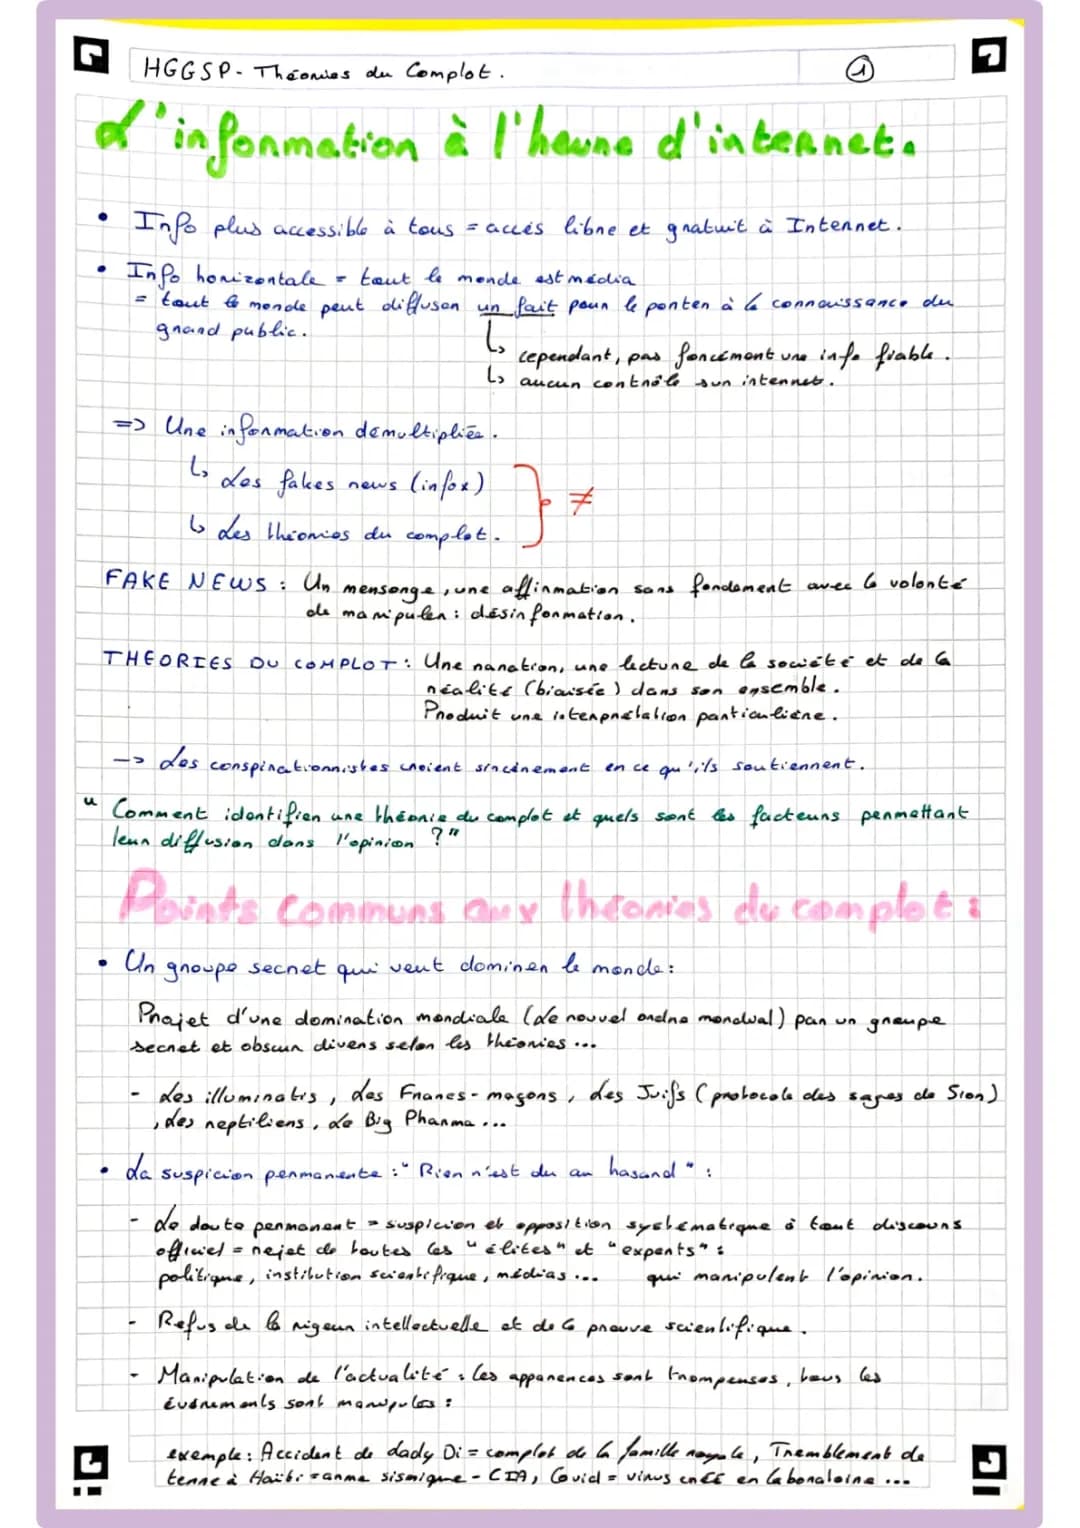 HGGSP - Théories du Complot.
1
L'information à l'heure d'internet.
• Info plus accessible à tous = accès libre et gratuit à Internet.
• Info horizontale = tout le monde est média
= tout le monde peut diffuser un fait pour le porter à la connaissance du
grand public.
↳ cependant, pas forcément une info fiable.
↳ aucun contrôle sur internet.
=> Une information démultipliée.
↳ Les fakes news (infox)
↳ Les théories du complot.
≠
FAKE NEWS : Un mensonge, une affirmation sans fondement avec la volonté
de manipuler : désinformation.
THEORIES DU COMPLOT : Une narration, une lecture de la société et de la
réalité (biaisée) dans son ensemble.
Produit une interprétation particulière.
-> Les conspirationnistes croient sincèrement en ce qu'ils soutiennent.
" Comment identifier une théorie du complot et quels sont les facteurs permettant
leur diffusion dans l'opinion ?"
Points communs aux théories du complot :
• Un groupe secret qui veut dominer le monde :
Projet d'une domination mondiale (Le nouvel ordre mondial) par un groupe
secret et obscur divers selon les théories ...
- Les illuminatis, Les Francs-maçons, Les Juifs (protocole des sages de Sion)
, Les reptiliens, Le Big Pharma ...
• La suspicion permanente : " Rien n'est du au hasard " :
- Le doute permanent = suspicion et opposition systématique à tout discours
officiel = rejet de toutes les " élites " et " experts " :
politique, institution scientifique, médias ... qui manipulent l'opinion.
- Refus de la rigeur intellectuelle et de la preuve scientifique.
- Manipulation de l'actualité : les apparences sont trompeuses, tous les
évènements sont manipulés :
exemple : Accident de lady Di = complot de la famille royale, Tremblement de
terre à Haïti = arme sismique - CIA, Covid = virus créé en laboratoire ...